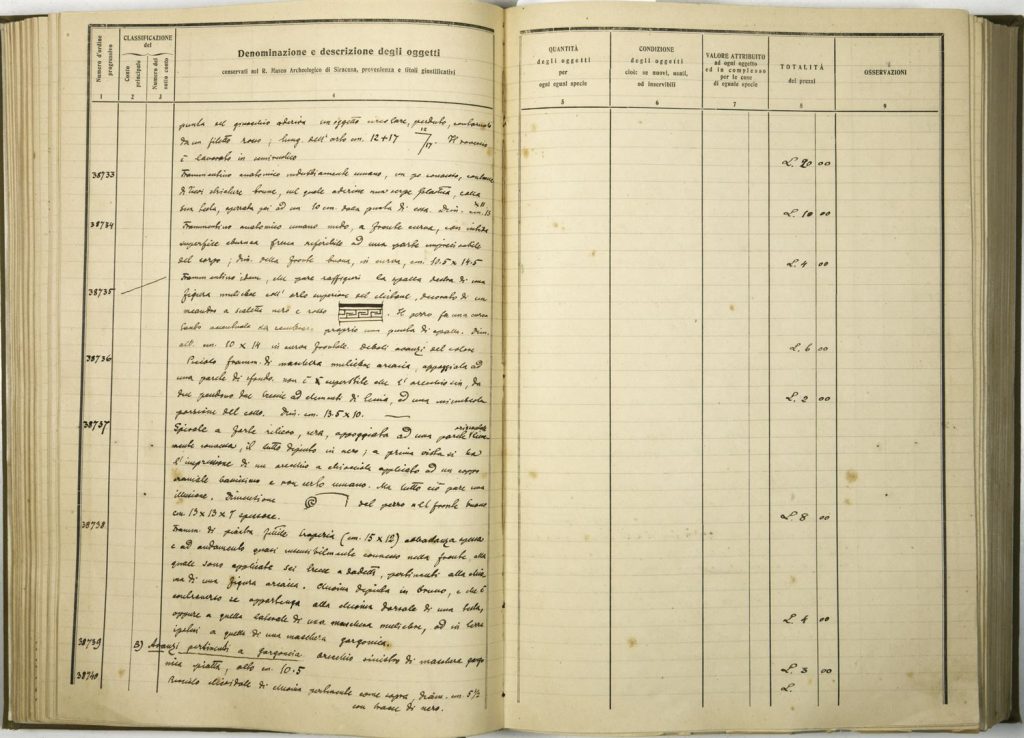 Numero d'ordine progressivo
CLASSIFICAZIONE del
Conto principale
Numero del sotto conto
Denominazione e descrizione degli oggetti
conservati nel R. Museo Archeologico di Siracusa, provenienza e titoli giustificativi
1 2 3 4
punta del ginocchio aderiva un oggetto circolare, perduto, contornato
da un filetto rosso; lung. dell'orlo cm. 12+17 12/17. Il rovescio
è lavorato in
38733 Frammentino anatomico indubbiamente umano, un po convesso,
di striature brune, sul quale aderisce una serpe plastica, colla
sua testa, spezzata poi ad un 10 cm. dalla punta di essa. Dim. cm. 15
38734 Frammentino anatomico umano nudo, a fronte curva, con
superficie eburnea fresca riferibile ad una parte imprecisabile
del corpo; dim. della fronte buona, in curva, cm. 10.5 x 14.5
38735 Frammentino idem, che pare raffiguri la spalla destra di una
figura muliebre coll'orlo superiore del chitone, decorato di un
meandro a scaletta nero e rosso . Il pezzo fa una curva
tanto accentuata da sembrare proprio una punta di spalla. Dim.
alt. cm. 10 x 14 in curva frontale. Deboli avanzi del colore.
38736 Piccolo framm. di maschera muliebre arcaica, appoggiata ad
una parete di sfondo. non è superstite che l'orecchio sin, da
due pendono due trecce ad elementi di ad una minuscola
porzione del collo. Dim. cm. 13.5 x 10.
38737 Spirale a forte rilievo, nera, appoggiata ad una parete lieve-
mente convessa, il tutto dipinto in nero; a prima vista si ha
l'impressione di un orecchio a chiocciola applicato ad un corpo
animale e non certo umano. Ma tutto ciò pare una
illusione. Dimensione del pezzo nell fronte buono
cm 13 x 13 x 7 spessore.
38738 Framm. di piastra fittile (cm. 15 x 12) abbastanza spessa
e ad andamento quasi insensibilmente convesso nella fronte, alla
quale sono applicate sei trecce a dadetti, pertinenti alla chio
ma di una figura arcaica. Chioma dipinta in bruno, e che è
controverso se appartenga alla chioma dorsale di una testa,
oppure a quella laterale di una maschera muliebre, od in terza
ipotesi a quella di una maschera gorgonica.
38739 3) Avanzi pertinenti a Gorgoneia. orecchio sinistro di maschera gorgo
nica piatta, alto cm. 10.5
38740 Ricciolo elicoidale di chioma pertinente come sopra, diam. cm. 5 1/2
con tracce di nero.
QUANTITÀ degli oggetti per ogni egual specie
CONDIZIONE degli oggetti cioè: se nuovi, usati, od inservibili
VALORE ATTRIBUITO ad ogni oggetto ed in complesso per le cose di eguale specie
TOTALITÀ dei prezzi
OSSERVAZIONI
5 6 7 8 9
L. 20 00
L. 10 00
L. 4 00
L. 6 00
L. 2 00
L. 8 00
L. 4 00
L. 3 00
L.